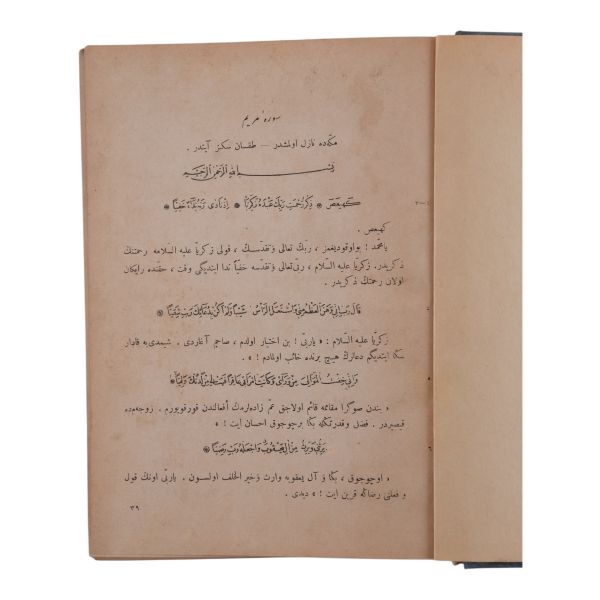 سوره‌ٔ مريم
مكه‌ده نازل اولمشدر — طقسان سكز آيتدر .
بسم الله الرحمن الرحيم
كهيعص * ذكر رحمت ربك عبده زكريا * اذ نادى ربه نداء خفيا *
كهيعص .
يا محمد ! بو اوقوديغمز ، ربك تعالى و تقدسك ، قولى زكريا عليه السلامه رحمتنك
ذكريدر . زكريا عليه السلام ، ربى تعالى و تقدسه خفياً ندا ايتديگى وقت ، حقنده رايكان
اولان رحمتك ذكريدر .
قال رب انى وهن العظم منى واشتعل الرأس شيبا ولم اكن بدعائك رب شقيا *
زكريا عليه السلام : « ياربى ! بن اختيار اولدم ، صاچم آغاردى . شيمدى‌يه قادار
سكا ايتديگم دعالرك هيچ برنده خائب اولمادم ! » .
وانى خفت الموالى من ورائى وكانت امرأتى عاقرا فهب لى من لدنك وليا *
« بندن صوڭرا مقامه قائم اولاجق عم زاده‌لرمك افعالندن قورقويورم . زوجه‌م‌ده
قيصيردر . فضل و قدرتكله بكا بر چوجوق احسان ايت ! »
يرثنى ويرث من آل يعقوب واجعله رب رضيا *
« او چوجوق ، بكا و آل يعقوبه وارث و خير الخلف اولسون . ياربى اونك قول
و فعلنى رضاكه قرين ايت ! » ديدى .
٣٩